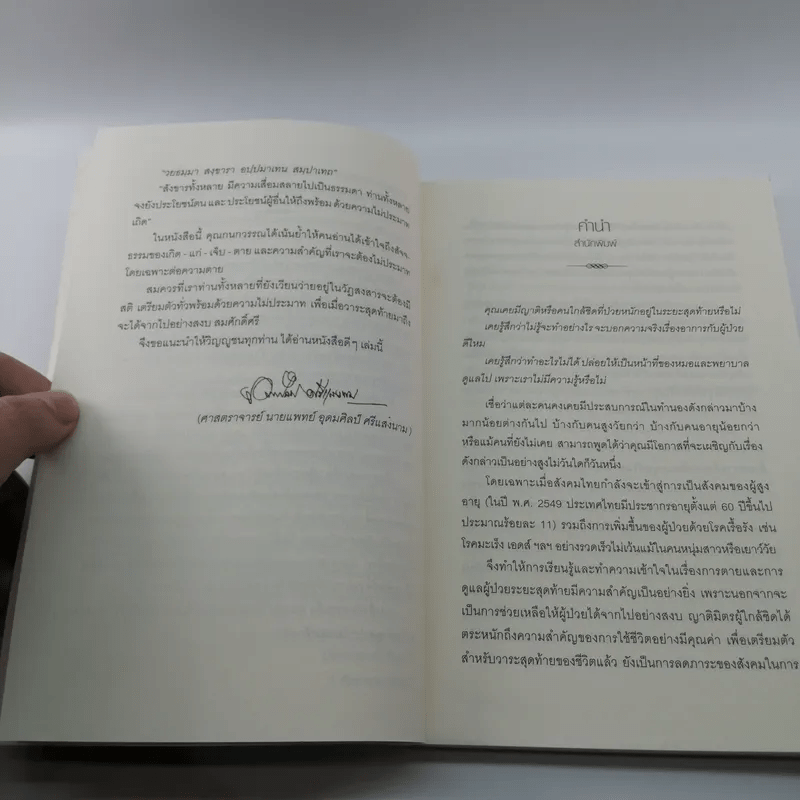 "วยธมฺมา สงฺขารา อปฺปมาเทน สมฺปาเทถ"
"สังขารทั้งหลาย มีความเสื่อมสลายไปเป็นธรรมดา ท่านทั้งหลาย
จงยังประโยชน์ตน และ ประโยชน์ผู้อื่นให้ถึงพร้อม ด้วยความไม่ประมาท
เถิด"
ในหนังสือนี้ คุณกนกวรรณได้เน้นย้ำให้คนอ่านได้เข้าใจถึงสัจจ-
ธรรมของเกิด - แก่ - เจ็บ - ตาย และความสำคัญที่เราจะต้องไม่ประมาท
โดยเฉพาะต่อความตาย
สมควรที่เราท่านทั้งหลายที่ยังเวียนว่ายอยู่ในวัฏสงสารจะต้องมี
สติ เตรียมตัวทั่วพร้อมด้วยความไม่ประมาท เพื่อเมื่อวาระสุดท้ายมาถึง
จะได้จากไปอย่างสงบ สมศักดิ์ศรี
จึงขอแนะนำให้วิญญูชนทุกท่าน ได้อ่านหนังสือดีๆ เล่มนี้
(ศาสตราจารย์ นายแพทย์ อุดมศิลป์ ศรีแสงนาม)
คำนำ
สำนักพิมพ์
คุณเคยมีญาติหรือคนใกล้ชิดที่ป่วยหนักอยู่ในระยะสุดท้ายหรือไม่
เคยรู้สึกว่าไม่รู้จะทำอย่างไร จะบอกความจริงเรื่องอาการกับผู้ป่วย
ดีไหม
เคยรู้สึกว่าทำอะไรไม่ได้ ปล่อยให้เป็นหน้าที่ของหมอและพยาบาล
ดูแลไป เพราะเราไม่มีความรู้หรือไม่
เชื่อว่าแต่ละคนคงเคยมีประสบการณ์ในทำนองดังกล่าวมาบ้าง
มากน้อยต่างกันไป บ้างกับคนสูงวัยกว่า บ้างกับคนอายุน้อยกว่า
หรือแม้คนที่ยังไม่เคย สามารถพูดได้ว่าคุณมีโอกาสที่จะเผชิญกับเรื่อง
ดังกล่าวเป็นอย่างสูงไม่วันใดก็วันหนึ่ง
โดยเฉพาะเมื่อสังคมไทยกำลังจะเข้าสู่การเป็นสังคมของผู้สูง
อายุ (ในปี พ.ศ. 2549 ประเทศไทยมีประชากรอายุตั้งแต่ 60 ปีขึ้นไป
ประมาณร้อยละ 11) รวมถึงการเพิ่มขึ้นของผู้ป่วยด้วยโรคเรื้อรัง เช่น
โรคมะเร็ง เอดส์ ฯลฯ อย่างรวดเร็วไม่เว้นแม้ในคนหนุ่มสาวหรือเยาว์วัย
จึงทำให้การเรียนรู้และทำความเข้าใจในเรื่องการตายและการ
ดูแลผู้ป่วยระยะสุดท้ายมีความสำคัญเป็นอย่างยิ่ง เพราะนอกจากจะ
เป็นการช่วยเหลือให้ผู้ป่วยได้จากไปอย่างสงบ ญาติมิตรผู้ใกล้ชิดได้
ตระหนักถึงความสำคัญของการใช้ชีวิตอย่างมีคุณค่า เพื่อเตรียมตัว
สำหรับวาระสุดท้ายของชีวิตแล้ว ยังเป็นการลดภาระของสังคมในการ